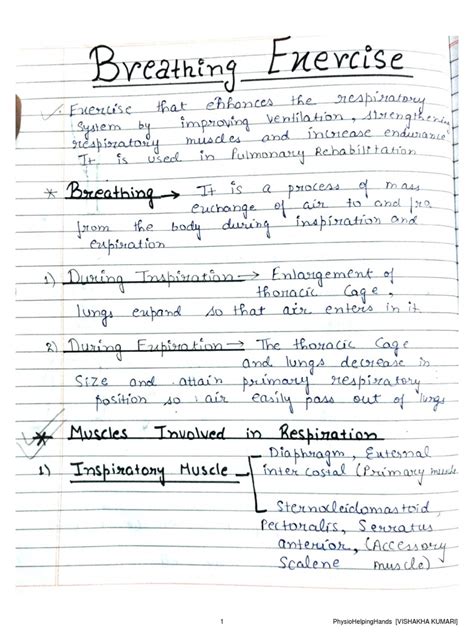 Breathing Exercise
Exercise that enhances the respiratory
system by improving ventilation, strengthening
respiratory muscles and increase endurance
It is used in Pulmonary Rehabilitation
* Breathing → It is a process of mass
exchange of air to and fro
from the body during inspiration and
expiration
1) During Inspiration → Enlargement of
thoracic cage,
lungs expand so that air enters in it.
2) During Expiration → The thoracic cage
and lungs decrease in
size and attain primary respiratory
position so air easily pass out of lungs
* Muscles Involved in Respiration
1) Inspiratory Muscle - Diaphragm, External
intercostal (Primary muscle
Sternocleidomastoid,
Pectoralis, Serratus
anterior, (Accessory
Scalene muscle)
1 PhysioHelpingHands [VISHAKHA KUMARI]